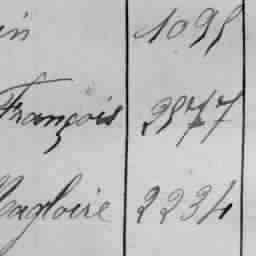 in 1095
François 2577
Magloire 2234